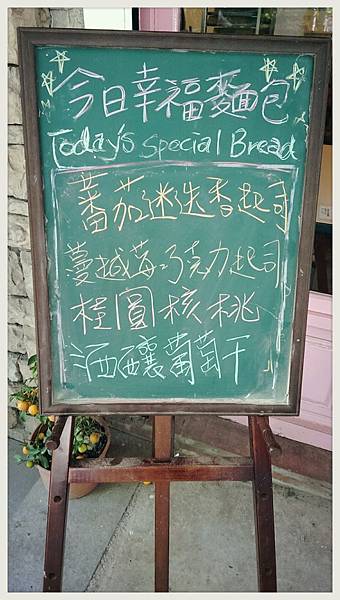 今日幸福麵包
Today's Special Bread
蕃茄迷迭香起司
蔓越莓巧克力起司
桂圓核桃
酒釀葡萄干